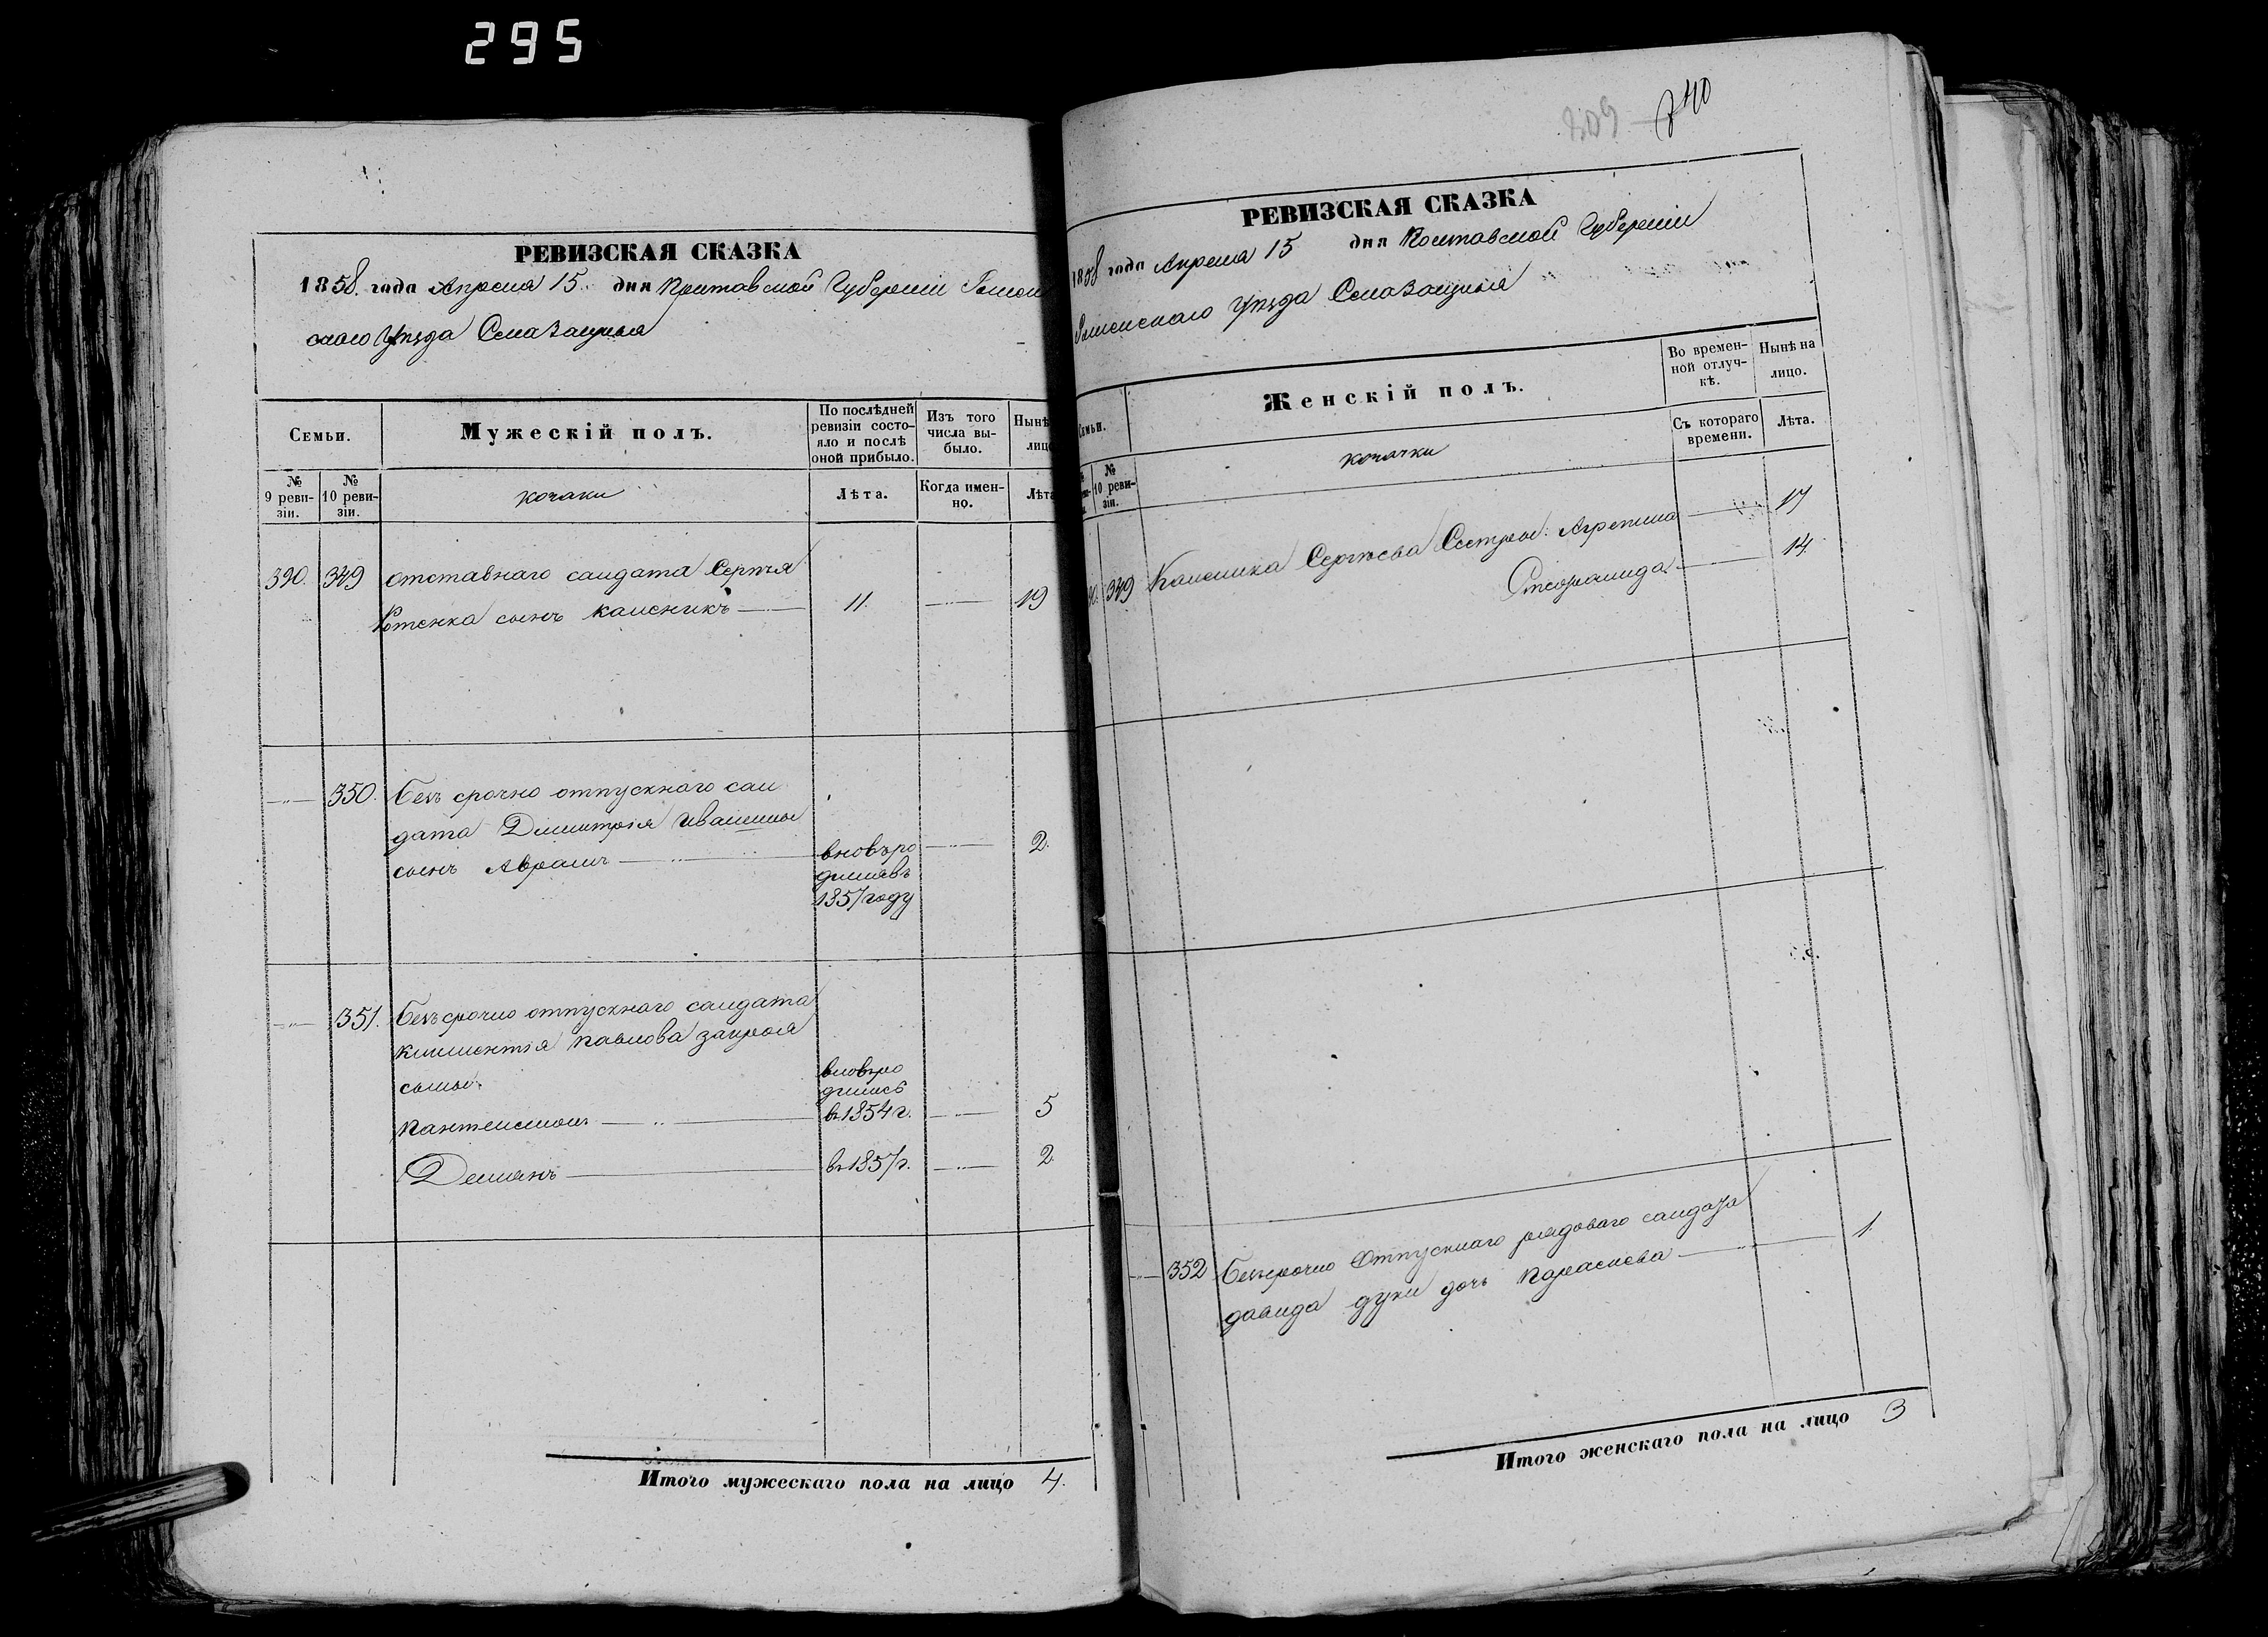 295
РЕВИЗСКАЯ СКАЗКА
1858. года Апреля 15. дня Полтавской Губерніи Ромен
ского Уѣзда Села Бацманы
Семьи.
Мужескій полъ.
По послѣдней ревизіи состо-
яло и послѣ
оной прибыло.
Изъ того
числа вы-
было.
Нынѣ
лицо
№
9 реви-
зіи.
№
10 реви-
зіи.
козаки
Лѣта.
Когда имен-
но.
Лѣта
390. 349 отставнаго салдата Сергѣя
сынъ Каленикъ 11. 19
350. безъ срочно отпускнаго сал
дата Димитрія
сынъ Аврамъ вновь ро 2.
дился въ
1857 году
351. безъ срочно отпускнаго салдата
Климентія Павлова
сыны: вновь ро
дились
Пантелимонъ в 1854 г. 5
Демянъ в 1857 г. 2.
Итого мужескаго пола на лицо 4.
209 240
РЕВИЗСКАЯ СКАЗКА
1858 года Апреля 15 дня Полтавской Губерніи
Роменскаго Уѣзда Села
Семьи.
Женскій полъ.
Во времен-
ной отлуч-
кѣ.
Нынѣ на
лицо.
№
10 реви-
зіи.
козачки
Съ котораго
времени.
Лѣта.
349 Каленика Сергѣева Сестры: Агрепина 17
14
352 безъсрочно Отпускнаго рядоваго салдата
давида дуки дочь Параскева 1.
Итого женскаго пола на лицо 3